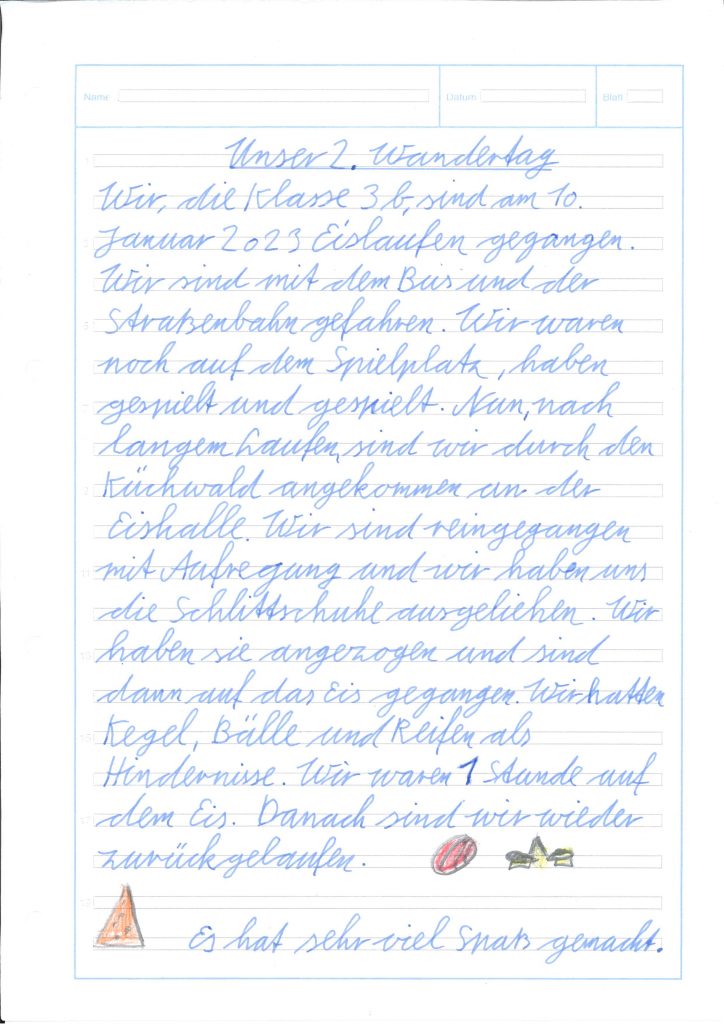 Name Datum Blatt
Unser 2. Wandertag
Wir, die Klasse 3b, sind am 10.
Januar 2023 Eislaufen gegangen.
Wir sind mit dem Bus und der
Straßenbahn gefahren. Wir waren
noch auf dem Spielplatz, haben
gespielt und gespielt. Nun, nach
langem Laufen, sind wir durch den
Küchwald angekommen an der
Eishalle. Wir sind reingegangen
mit Aufregung und wir haben uns
die Schlittschuhe ausgeliehen. Wir
haben sie angezogen und sind
dann auf das Eis gegangen. Wir hatten
Kegel, Bälle und Reifen als
Hindernisse. Wir waren 1 Stunde auf
dem Eis. Danach sind wir wieder
zurückgelaufen.
Es hat sehr viel Spaß gemacht.